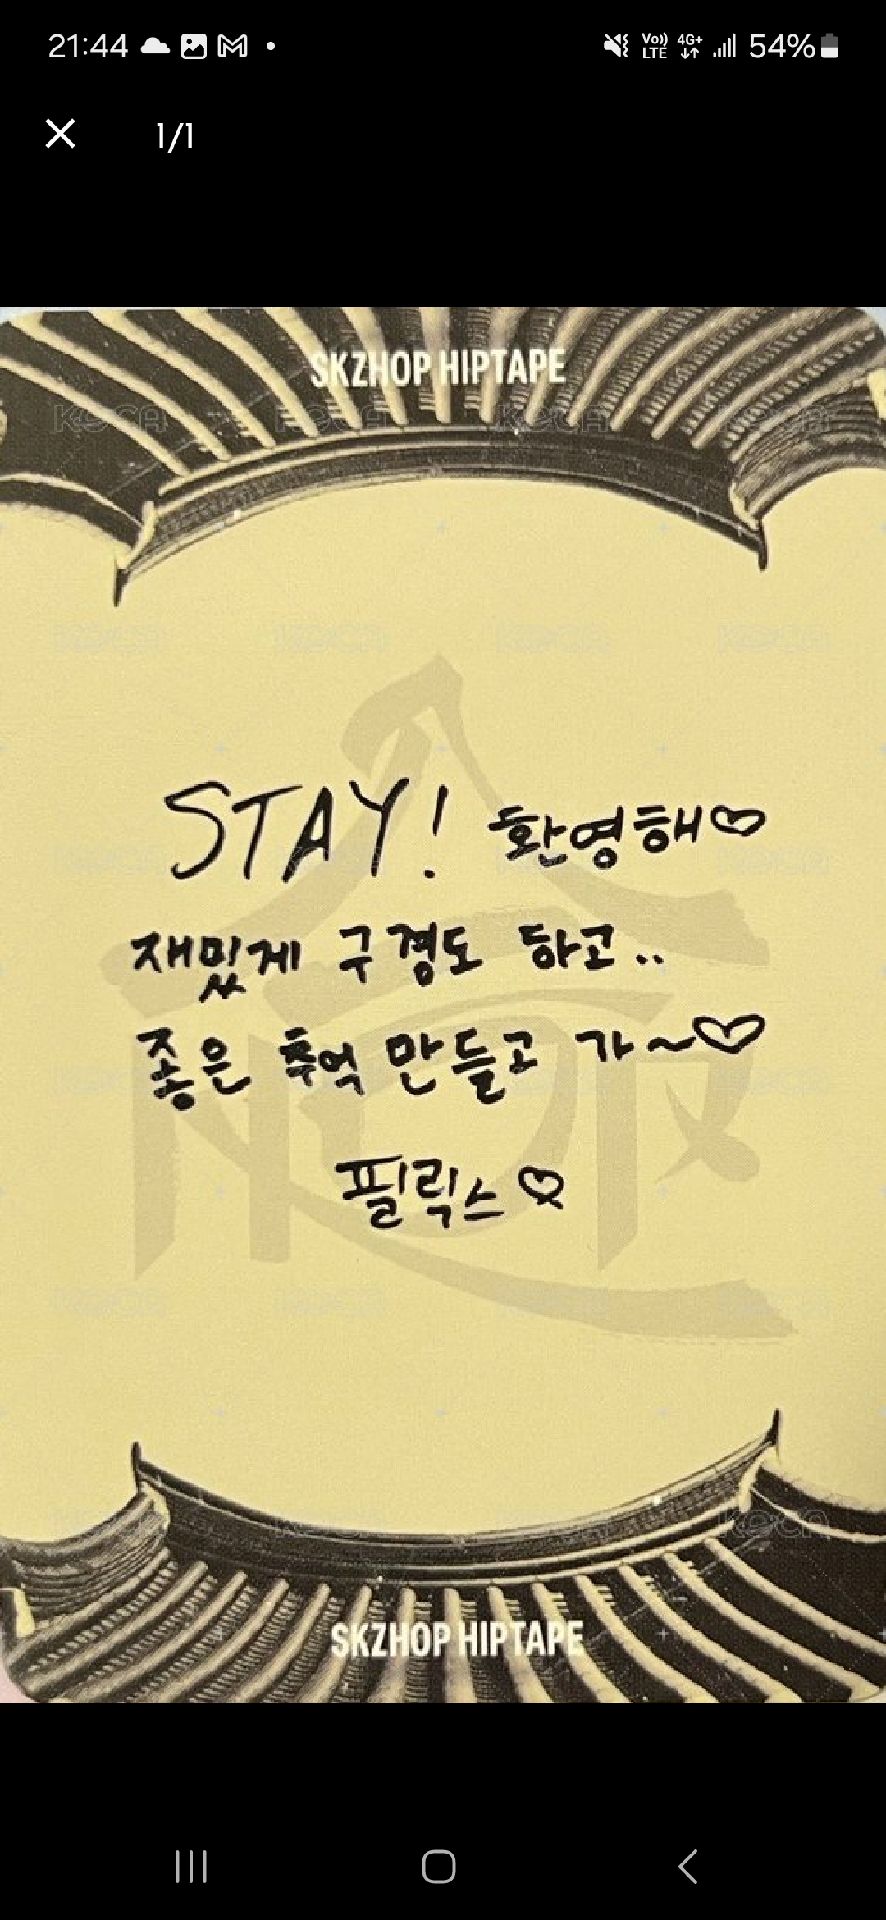 21:44
Vo)) LTE 4G+ 54%
1/1
SKZHOP HIPTAPE
STAY! 환영해♡
재밌게 구경도 하고..
좋은 추억 만들고 가~♡
필릭스♡
SKZHOP HIPTAPE
KOCA